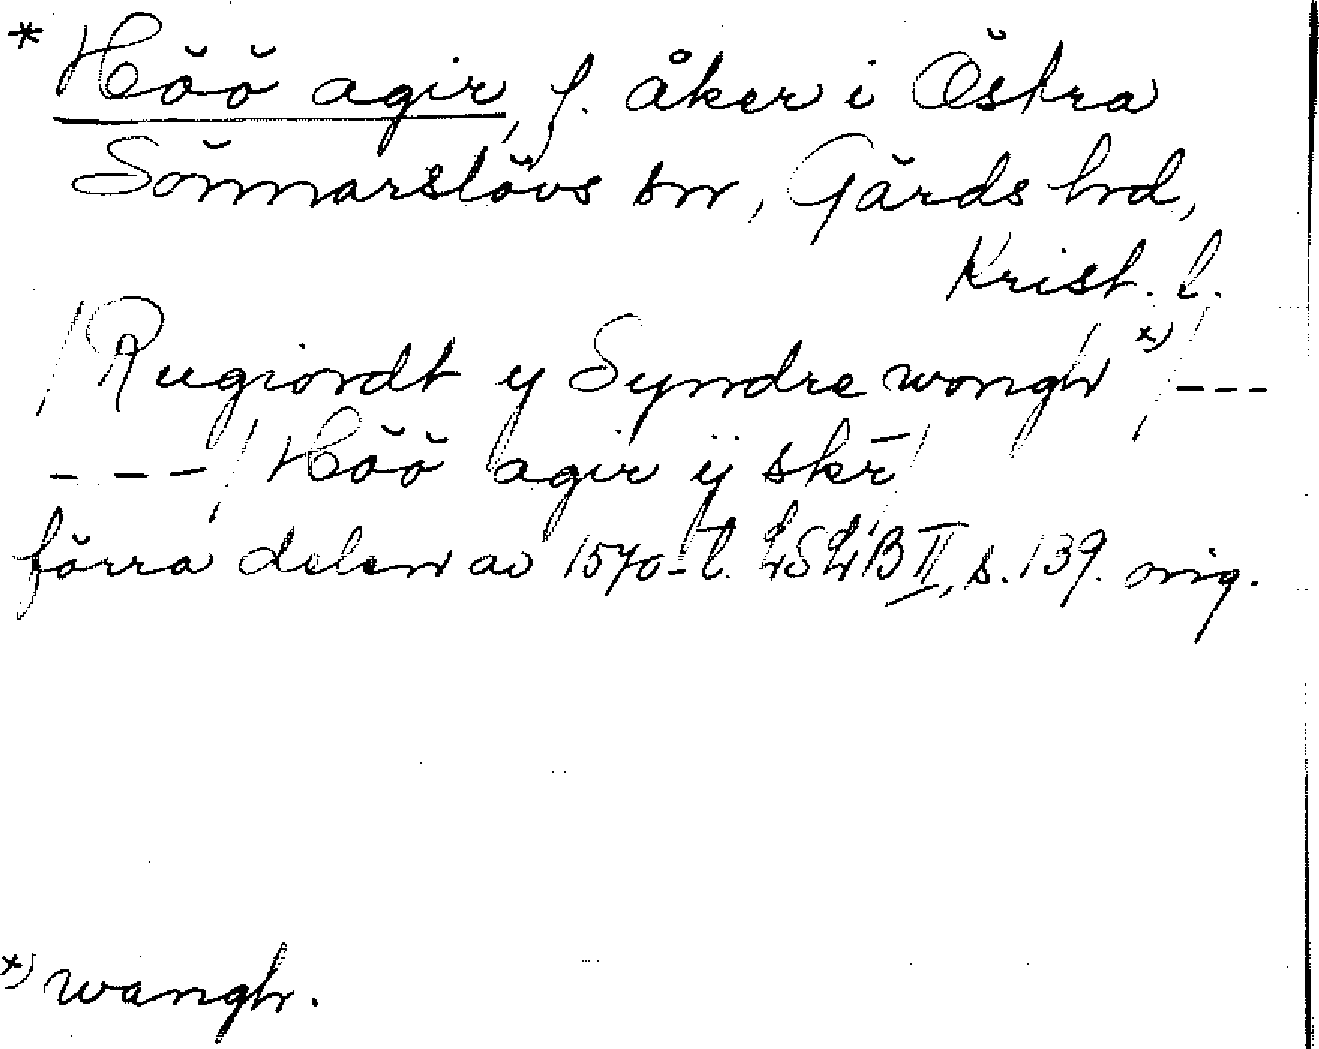 * Höö agir, f. åker i Östra
Sönnarslövs sn, Gärds hd,
Krist. l.
/Rugiordt y Syndre wongh *)/---
---/Höö agir ij skr̄/
förra delen av 1570-t. LSLB II, s. 139. orig.
*) wangh.